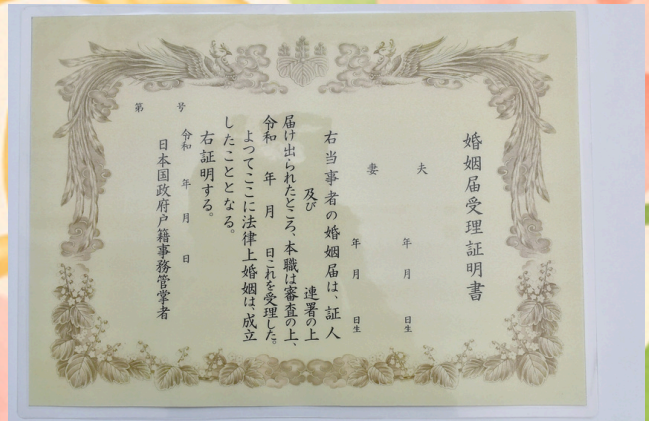 婚姻届受理証明書
夫 年 月 日生
妻 年 月 日生
右当事者の婚姻届は、証人
及び 連署の上
届け出られたところ、本職は審査の上、
令和 年 月 日これを受理した。
よつてここに法律上婚姻は、成立
したこととなる。
右証明する。
第 号
令和 年 月 日
日本国政府戸籍事務管掌者